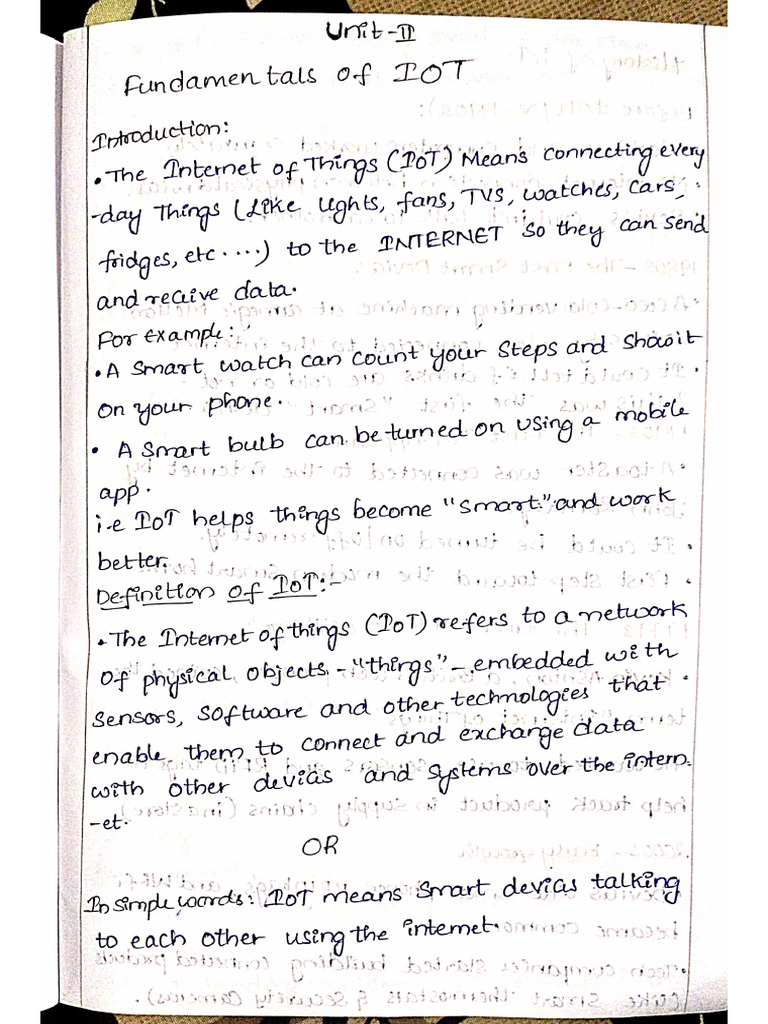 Unit-II
Fundamentals of IOT
Introduction:
• The Internet of Things (IoT) Means connecting every
-day Things (Like Lights, fans, TVs, watches, cars,
fridges, etc.....) to the INTERNET so they can send
and receive data.
For Example:
• A smart watch can count your steps and show it
on your phone.
• A smart bulb can be turned on using a mobile
app.
i.e IoT helps things become "smart" and work
better.
Definition of IoT:-
• The Internet of things (IoT) refers to a network
of physical objects - "things" - embedded with
sensors, software and other technologies that
enable them to connect and exchange data
with other devices and systems over the intern
-et.
OR
In simple words: IoT means smart devices talking
to each other using the internet.